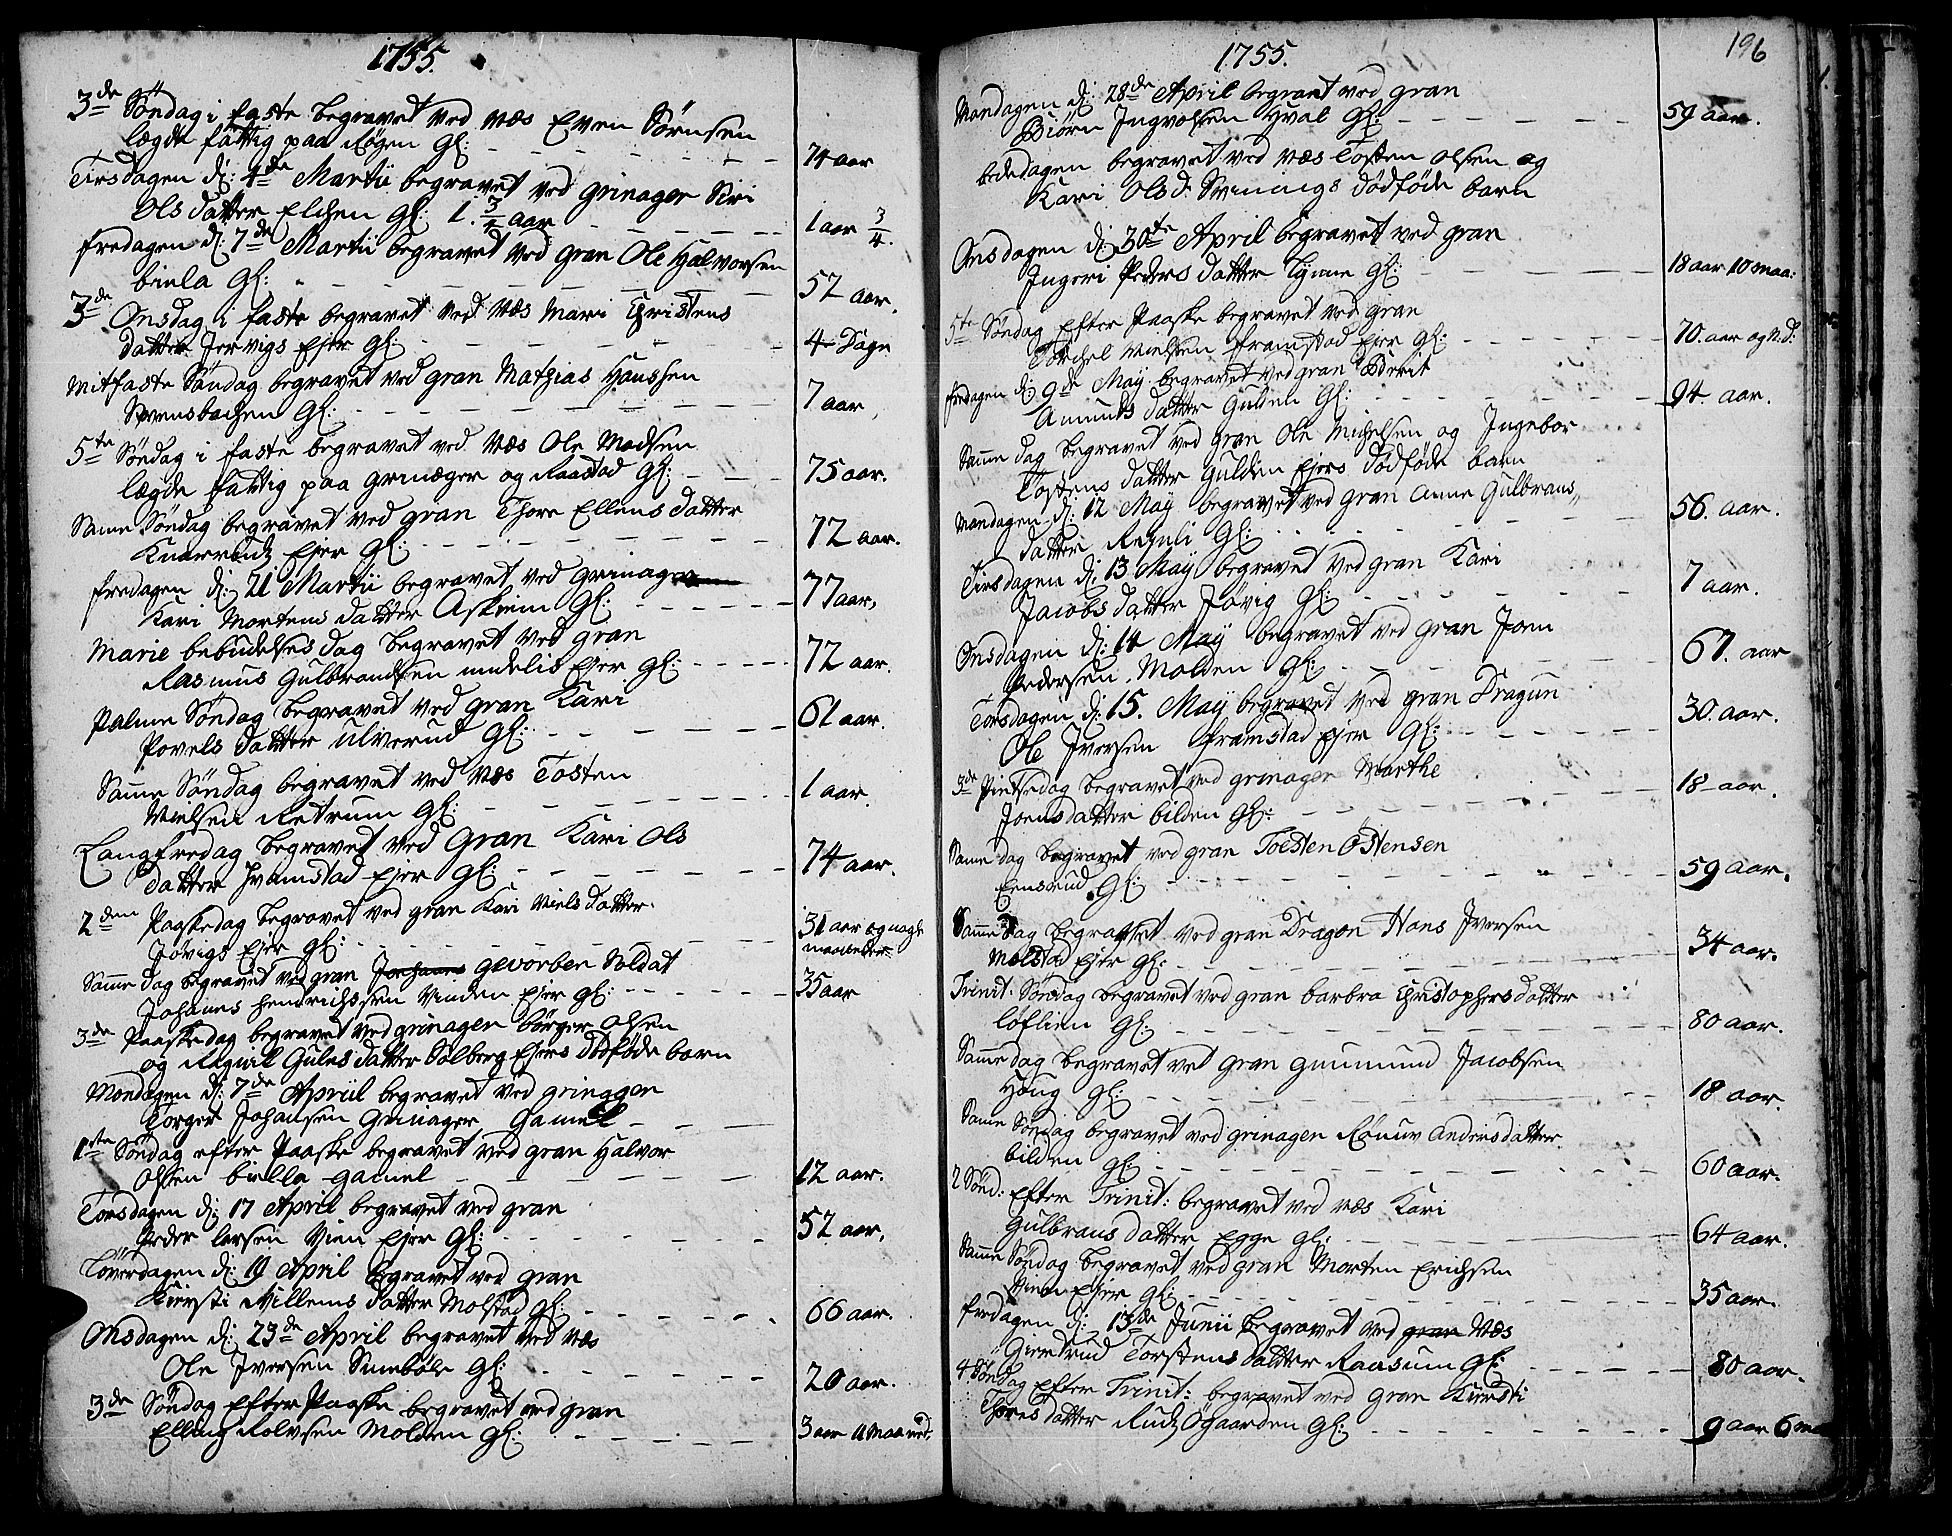 1755.
3de Søndag i faste begravet ved Næs Even Sørensen
lægde fattig paa Røgen Gl: 74 aar
Tirsdagen d: 4de Martii begravet ved Grinager Siri
Ols datter Elchen Gl: 1. 3/4 aar 1 aar 3/4.
fredagen d: 7de Martii begravet ved Gran Ole Halvorsen
biela Gl: 52 aar.
3de Onsdag i faste begravet ved Næs Mari Christens
datter Jervigs Ejer Gl: 4 Dage
Mitfaste Søndag begravet ved Gran Mathias Hanssen
Svensbachen Gl: 7 aar.
5te Søndag i faste begravet ved Næs Ole Madsen
lægde fattig paa Grinager og Raastad Gl: 75 aar.
Same Søndag begravet ved Gran Thore Ellens datter
Ejer Gl: 72 aar.
fredagen d: 21 Martii begravet ved Grinager
Kari Mortens datter Askiem Gl: 77 aar.
Marie bebudelses dag begravet ved Gran
Rasmus Gulbrandsen Ejer Gl: 72 aar.
Palme Søndag begravet ved Gran Kari
Povels datter Ulverud Gl: 61 aar.
Same Søndag begravet ved Næs Tosten
Nielsen Retrum Gl: 1 aar.
Langfredag begravet ved Gran Kari Ols
datter framstad Ejer Gl: 74 aar.
2den Paaskedag begravet ved Gran Kari Niels datter
Jøvigs Ejer Gl: 31 aar og nogle
maaneder
Same dag begravet ved Gran Johanns Gevorben Soldat
Johanns Hendrichssen Vinden Ejer Gl: 35 aar
3de Paaskedag begravet ved Grinager børger Olsen
og Ragnil Gules datter Solberg Ejers dødføde barn
Mondagen d: 7de Apriil begravet ved Grinager
Torger Johansen Grinager Gamel
1ste Søndag efter Paaske begravet ved Gran Halvor
Olsen biella Gamel 12 aar.
Torsdagen d: 17 April begravet ved Gran
Peder larsen Vien Ejer Gl: 52 aar.
Løverdagen d: 19 April begravet ved Gran
Kiersti Villems datter Molstad Gl: 66 aar.
Onsdagen d: 23de April begravet ved Næs
Ole Iversen Sunebøle Gl: 20 aar.
3de Søndag Efter Paaske begravet ved Gran
Elling Rolvsen Molden Gl: 3 aar 11 maaned.
1755.
196
Mandagen d: 28de April begravet ved Gran
Biørn Ingvolsen Hval Gl: 59 aar.
bededagen begravet ved Næs Tosten Olsen og
Kari Ols d: Svinings dødføde barn
Onsdagen d: 30te April begravet ved Gran
Ingeri Peders datter Gl: 18 aar 10 maa:
5te Søndag Efter Paaske begravet ved Gran
Torchel Nielsen framstad Ejer Gl: 70. aar og
fredagen d: 9de May begravet ved Gran Børrit
Amunds datter Gulden Gl: 94. aar.
Same dag begravet ved Gran Ole Michelsen og Ingebor
Tostens datter Gulden Ejers dødføde barn
Mandagen d: 12 May begravet ved Gran Anne Gulbrans,,
datter Gl: 56. aar.
Tirsdagen d: 13 May begravet ved Gran Kari
Jacobs datter Jøvig Gl: 7 aar.
Onsdagen d: 14 May begravet ved Gran Joen
Pedersen Molden Gl: 67. aar
Torsdagen d: 15. May begravet ved Gran Dragun
Ole Iversen framstad Ejer Gl: 30. aar.
3de Pintzedag begravet ved Grinager Marthe
Joensdatter bilden Gl: 18 aar.
Same dag begravet ved Gran Tosten Østensen
Eensrud Gl: 59 aar.
Same dag begravet ved Gran Dragon Hans Iversen
Molstad Ejer Gl: 34 aar.
Trinit: Søndag begravet ved Gran barbra Christophersdatter
løflien Gl: 80 aar.
Same dag begravet vet Gran Gunmund Jacobsen
Houg Gl: 18 aar.
Same Søndag begravet ved Grinager Rønnuv Andersdatter
bilden Gl: 60 aar.
2 Sønd: Efter Trinit: begravet ved Næs Kari
Gulbrans datter Egge Gl: 64 aar.
Same Søndag begravet ved Gran Morten Erichsen
Ejer Gl: 35 aar.
fredagen d: 13de Junii begravet ved gran Næs
Giertrud Torstens datter Raasum Gl: 80 aar.
4 Søndag Efter Trinit: begravet ved Gran Kiersti
Thores datter Rudz Øgaarden Gl: 9 aar 6